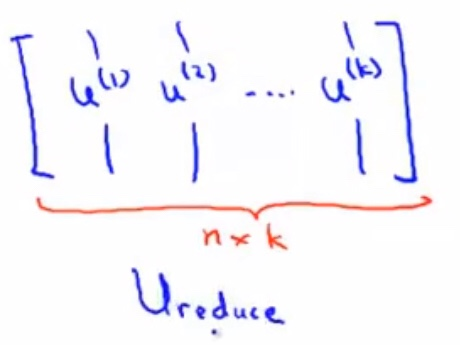 u^(1) u^(2) .... u^(k)
n × k
Ureduce